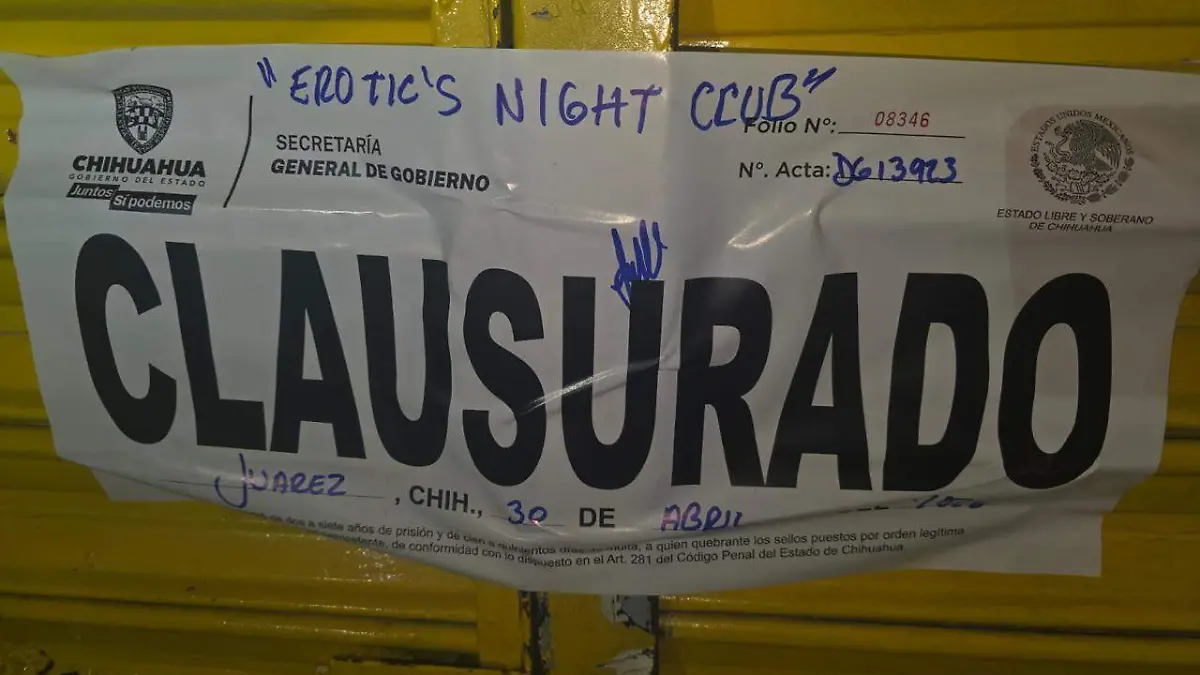 "EROTIC'S NIGHT CLUB"
CHIHUAHUA
GOBIERNO DEL ESTADO
Juntos
Sí podemos
SECRETARÍA
GENERAL DE GOBIERNO
Folio N°: 08346
N°. Acta: DG13923
ESTADOS UNIDOS MEXICANOS
ESTADO LIBRE Y SOBERANO
DE CHIHUAHUA
CLAUSURADO
JUAREZ, CHIH., 30 DE ABRIL
de dos a siete años de prisión y de cien a quinientos días multa, a quien quebrante los sellos puestos por orden legítima
de conformidad con lo dispuesto en el Art. 281 del Código Penal del Estado de Chihuahua